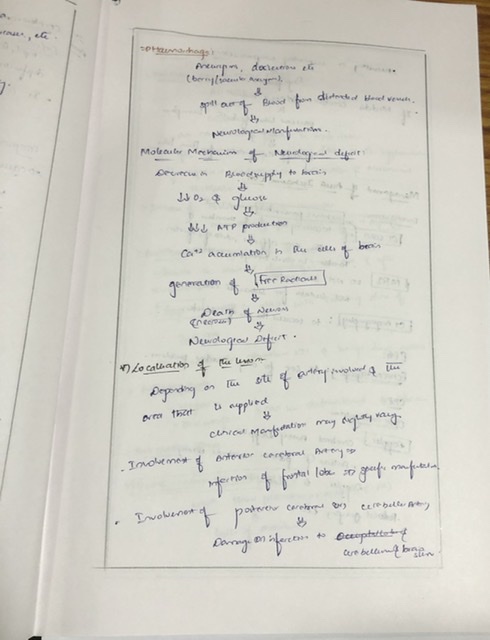 cause, etc
⇒ Haemorrhage:
Aneurysm, dissection etc
(berry/saccular Aneurysm)
⇓
spill out of Blood from distended blood vessels.
⇓
Neurological Manifestations.
Molecular Mechanism of Neurological deficit:
Decrease in Blood supply to brain
⇓
↓↓ O₂ & glucose
⇓
↓↓↓ ATP production
⇓
Ca⁺² accumulation in the cells of brain
⇓
generation of Free Radicals
⇓
Death of Neurons
(necrosis)
⇓
Neurological Deficit.
Localisation of the lesion
Depending on The site of artery involved & The
area that is supplied
⇓
clinical Manifestation may slightly vary.
. Involvement of Anterior cerebral Artery ⇒
infarction of frontal lobe ⇒ specific manifestation
. Involvement of posterior cerebral cerebellar Artery
⇓
Damage infarction to
cerebellum & brain
stem.